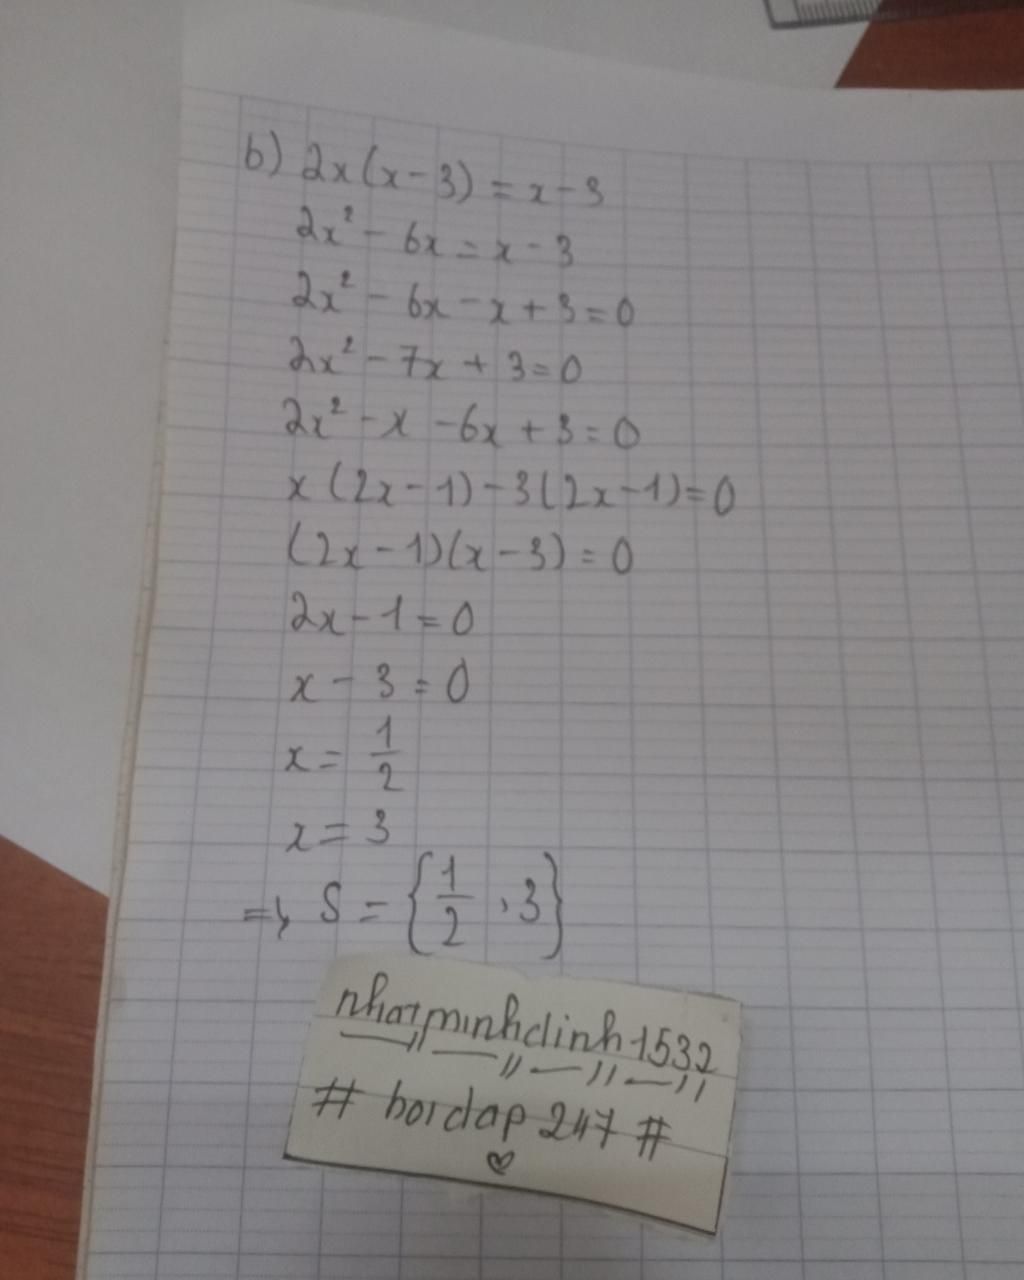 b) 2x(x-3) = x-3
2x² - 6x = x - 3
2x² - 6x - x + 3 = 0
2x² - 7x + 3 = 0
2x² - x - 6x + 3 = 0
x(2x-1) - 3(2x-1) = 0
(2x-1)(x-3) = 0
2x - 1 = 0
x - 3 = 0
x = 1/2
x = 3
=> S = {1/2, 3}
nhatminhdinh1532
# boidap 247 #